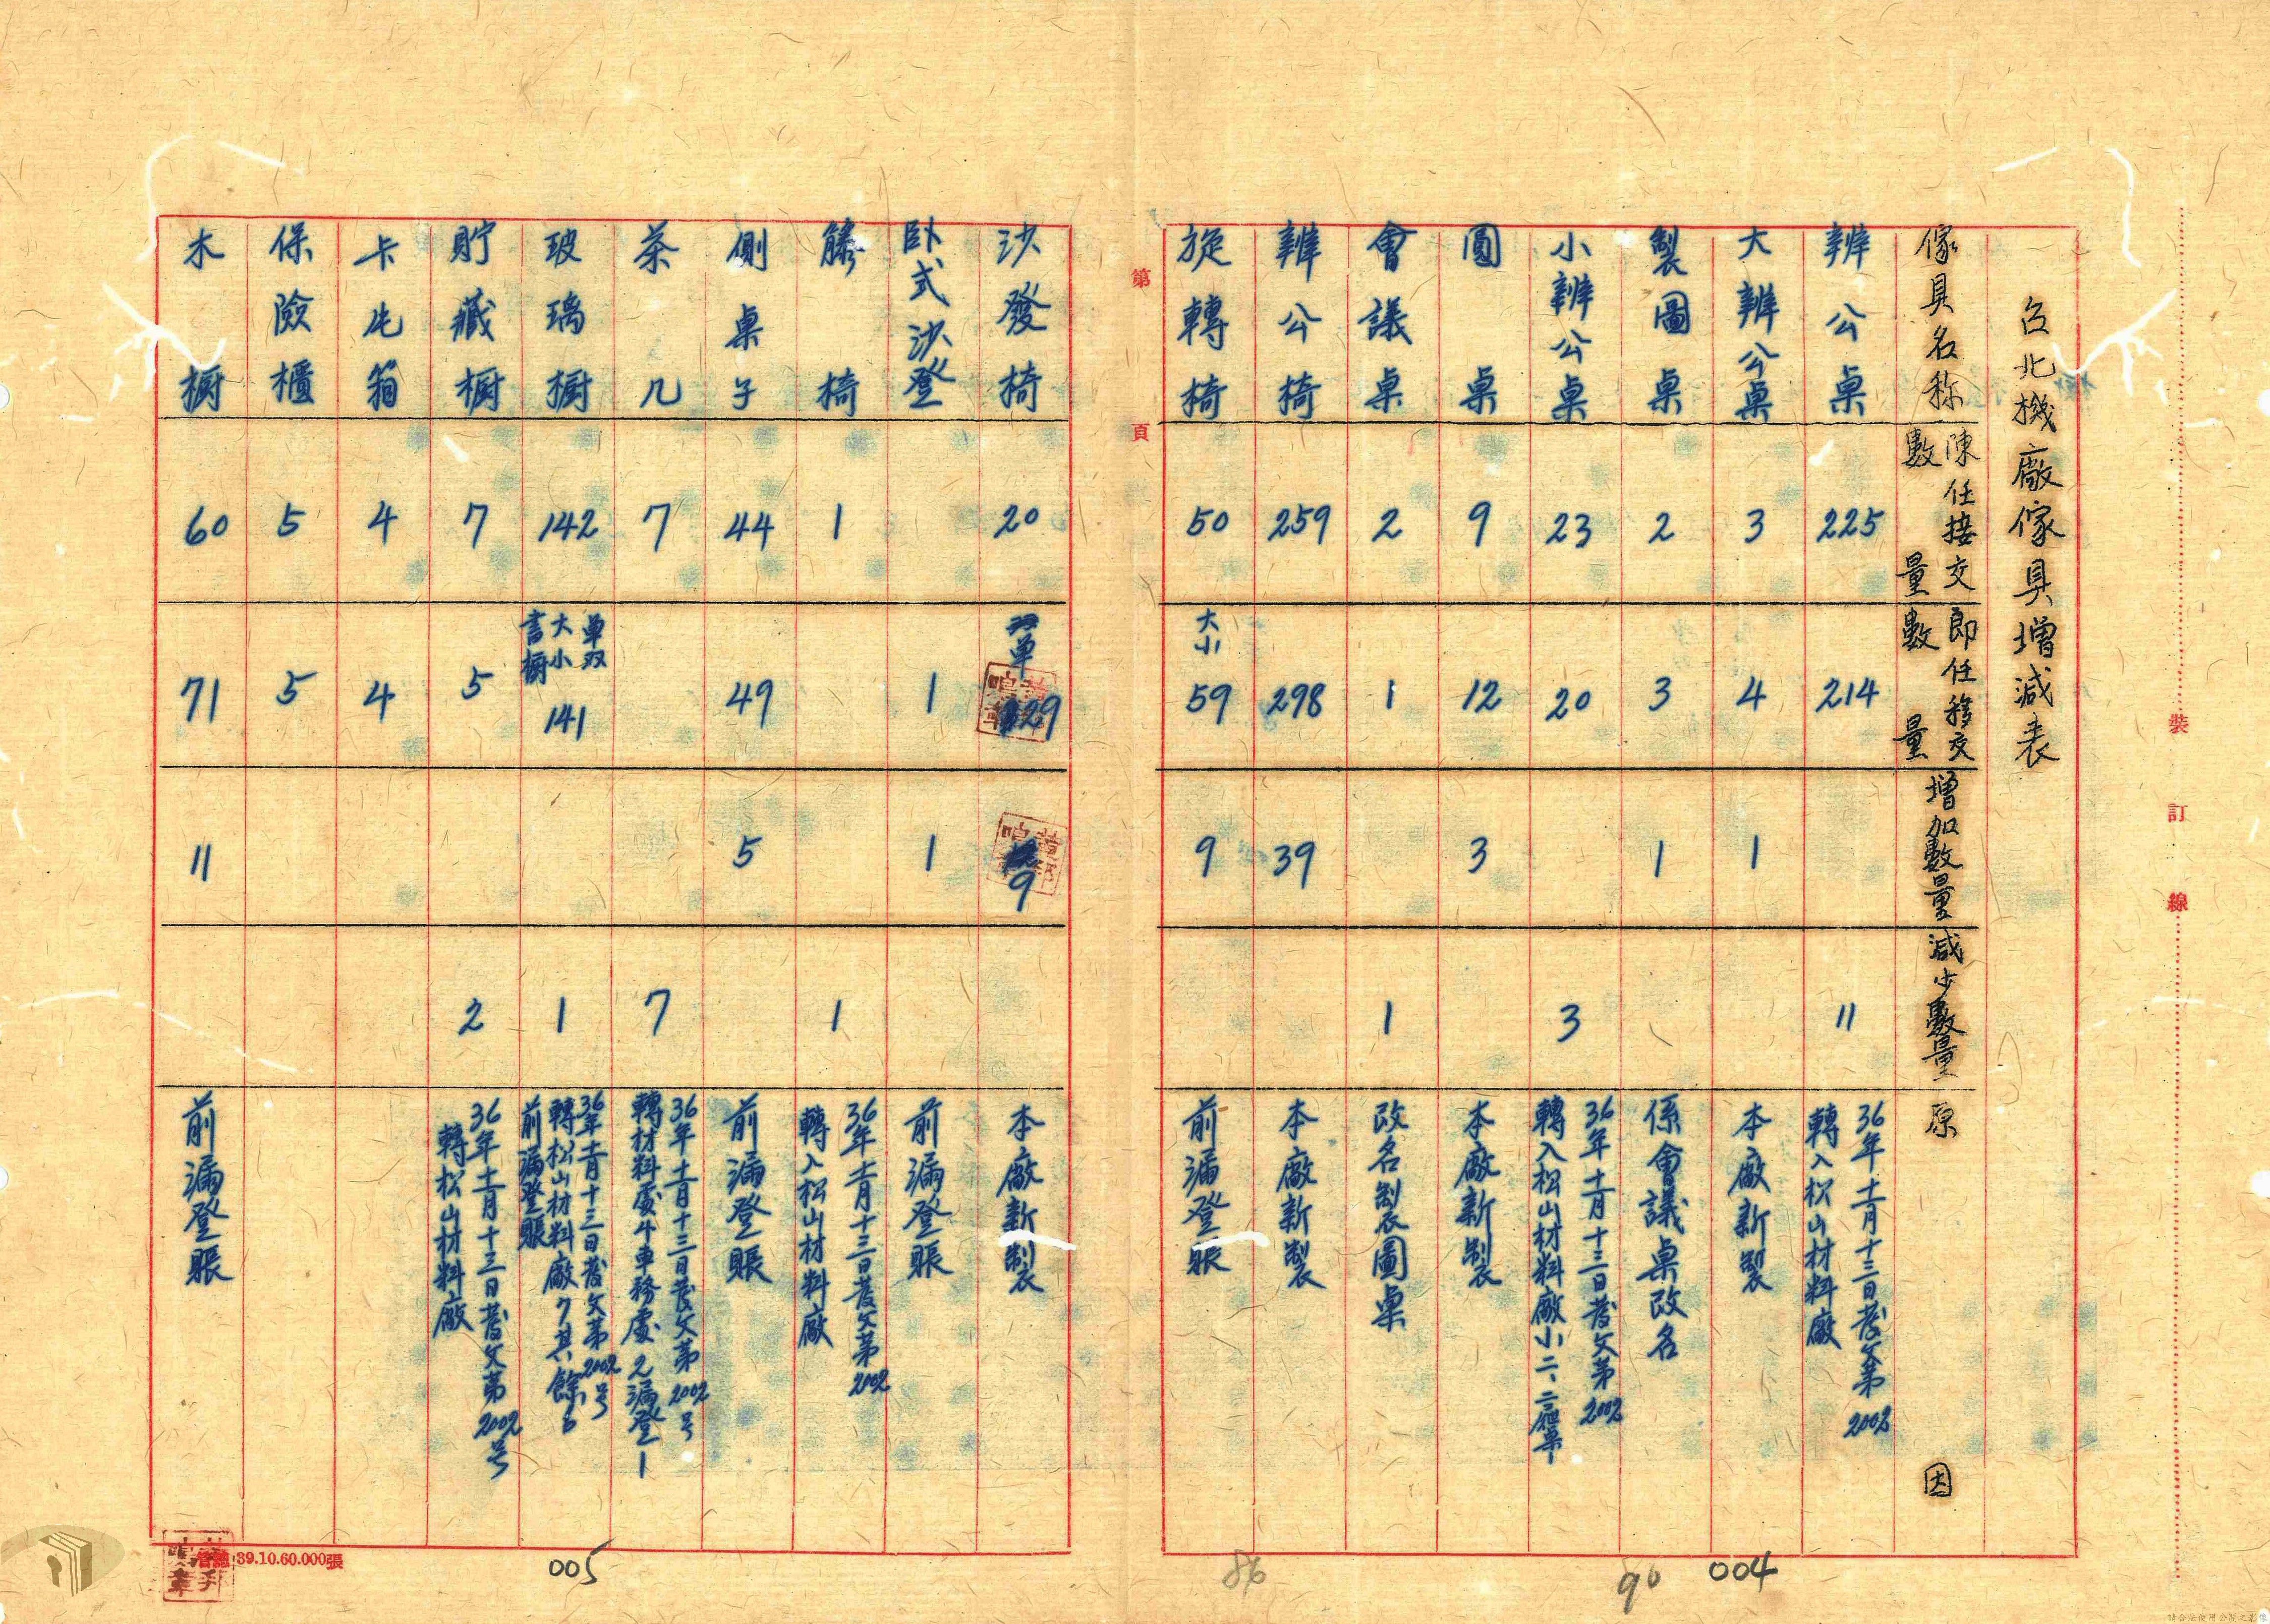 台北機廠傢具增減表
傢具名称
陳任接交數量
即任移交數量
增加數量
減少數量
原因
辦公桌
225
214
11
36年十二月十三日發文第2002
轉入松山材料廠
大辦公桌
3
4
1
本廠新製
製圖桌
2
3
1
係會議桌改名
小辦公桌
23
20
3
36年十二月十三日發文第2002
轉入松山材料廠小二、
圓桌
9
12
3
本廠新製
會議桌
2
1
1
改名製圖桌
辦公椅
259
298
39
本廠新製
旋轉椅
50
大小
59
9
前漏登賬
第頁
沙發椅
20
单
29
9
本廠新製
卧式沙登
1
1
前漏登賬
籐椅
1
1
36年十二月十三日發文第2002
轉入松山材料廠
側桌子
44
49
5
前漏登賬
茶几
7
7
36年十二月十三日發文第2002号
轉材料處4車務處2漏登1
玻璃橱
142
单双
大小
書橱
141
1
36年十二月十三日發文第2002号
轉松山材料廠7其餘6
前漏登賬
貯藏橱
7
5
2
36年十二月十三日發文第2002号
轉松山材料廠
卡片箱
4
4
保險櫃
5
5
木橱
60
71
11
前漏登賬
裝訂線
39.10.60.000張
005
86
90
004